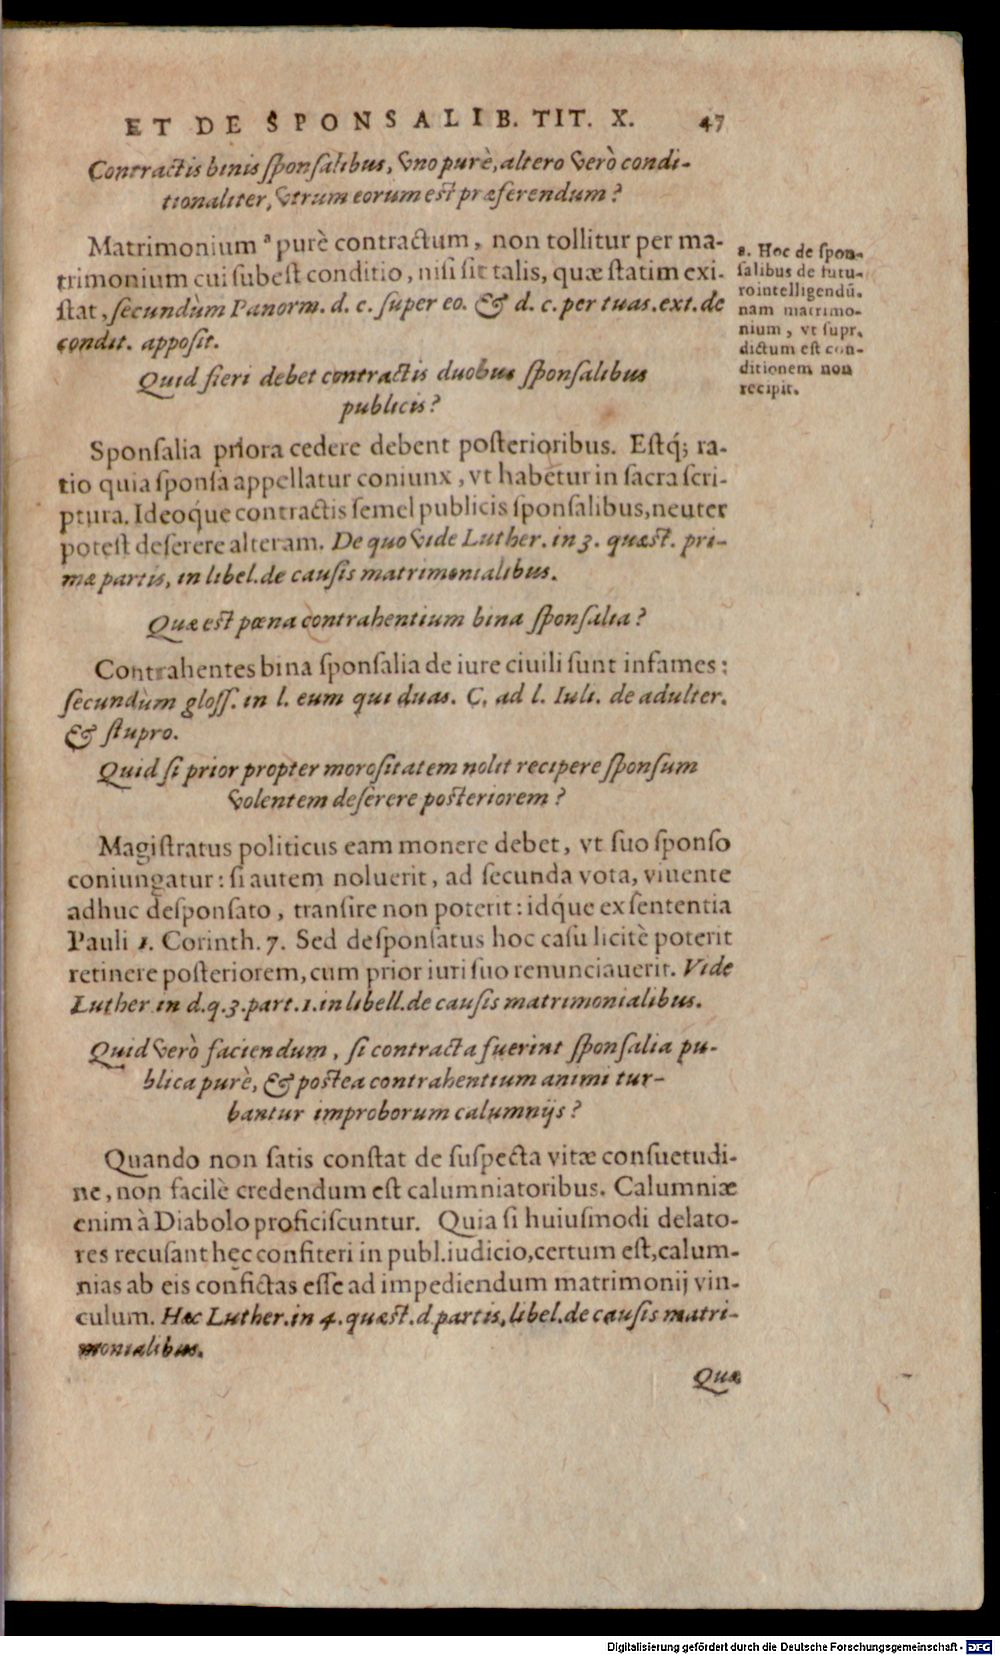 ET DE SPONSALIB. TIT. X. 47
Contractis binis sponsalibus, vno purè, altero verò condi-
tionaliter, vtrum eorum est præferendum?
Matrimonium ª purè contractum, non tollitur per ma-
trimonium cui subest conditio, nisi sit talis, quæ statim exi-
stat, secundùm Panorm. d. c. super eo. & d. c. per tuas. ext. de
condit. apposit.
a. Hoc de spon-
salibus de futu-
ro intelligendũ.
nam matrimo-
nium, vt supr.
dictum est con-
ditionem non
recipit.
Quid fieri debet contractis duobus sponsalibus
publicis?
Sponsalia priora cedere debent posterioribus. Estq́; ra-
tio quia sponsa appellatur coniunx, vt habetur in sacra scri-
ptura. Ideoq́ue contractis semel publicis sponsalibus, neuter
potest deserere alteram. De quo vide Luther. in 3. quæst. pri-
mæ partis, in libel. de causis matrimonialibus.
Quæ est pœna contrahentium bina sponsalia?
Contrahentes bina sponsalia de iure ciuili sunt infames:
secundùm gloss. in l. eum qui duas. C. ad l. Iuli. de adulter.
& stupro.
Quid si prior propter morositatem nolit recipere sponsum
volentem deserere posteriorem?
Magistratus politicus eam monere debet, vt suo sponso
coniungatur: si autem noluerit, ad secunda vota, viuente
adhuc desponsato, transire non poterit: idq́ue ex sententia
Pauli 1. Corinth. 7. Sed desponsatus hoc casu licitè poterit
retinere posteriorem, cum prior iuri suo renunciauerit. Vide
Luther in d. q. 3. part. 1. in libell. de causis matrimonialibus.
Quid verò faciendum, si contracta fuerint sponsalia pu-
blica purè, & postea contrahentium animi tur-
bantur improborum calumnijs?
Quando non satis constat de suspecta vitæ consuetudi-
ne, non facilè credendum est calumniatoribus. Calumniæ
enim à Diabolo proficiscuntur. Quia si huiusmodi delato-
res recusant hęc confiteri in publ. iudicio, certum est, calum-
nias ab eis confictas esse ad impediendum matrimonij vin-
culum. Hæc Luther. in 4. quæst. d. partis, libel. de causis matri-
monialibus.
Quæ
Digitalisierung gefördert durch die Deutsche Forschungsgemeinschaft - DFG